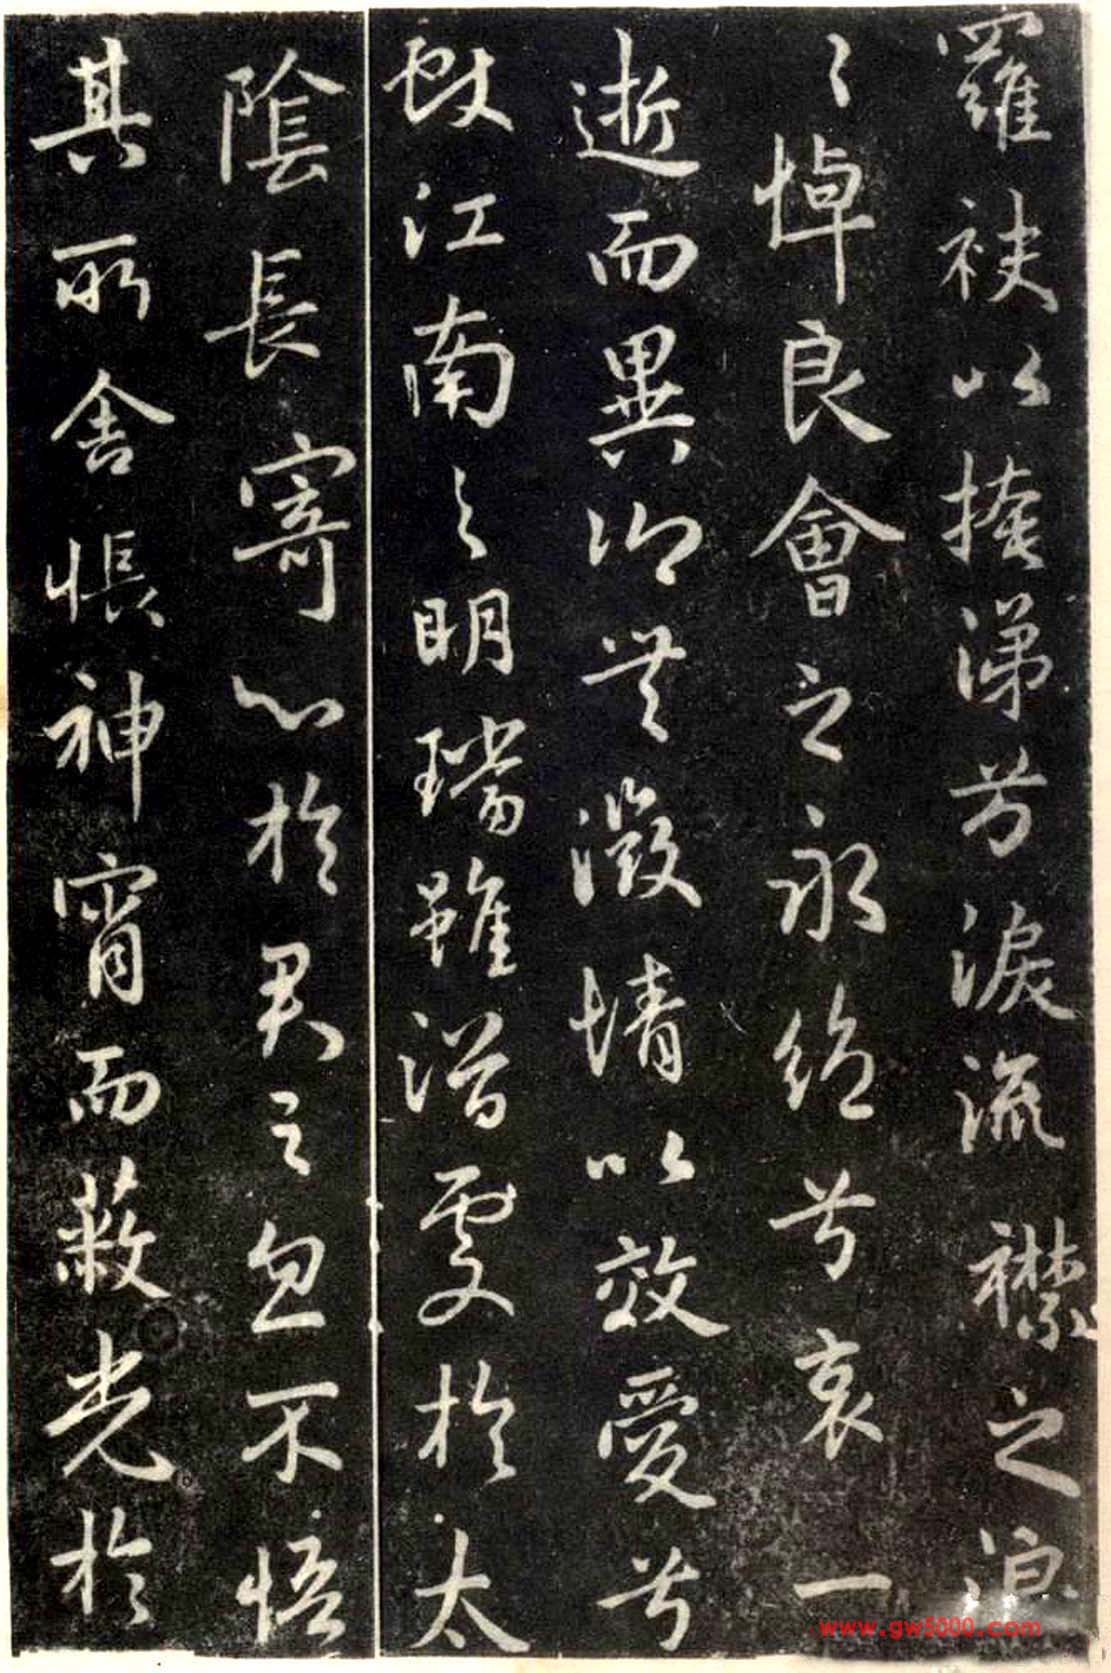 羅袂以掩涕兮淚流襟之浪
〻悼良會之永絕兮哀一
逝而異鄉無微情以效愛兮
獻江南之明璫雖潛處於太
陰長寄心於君之忽不悟
其所舍悵神宵而蔽光於
www.gw5000.com